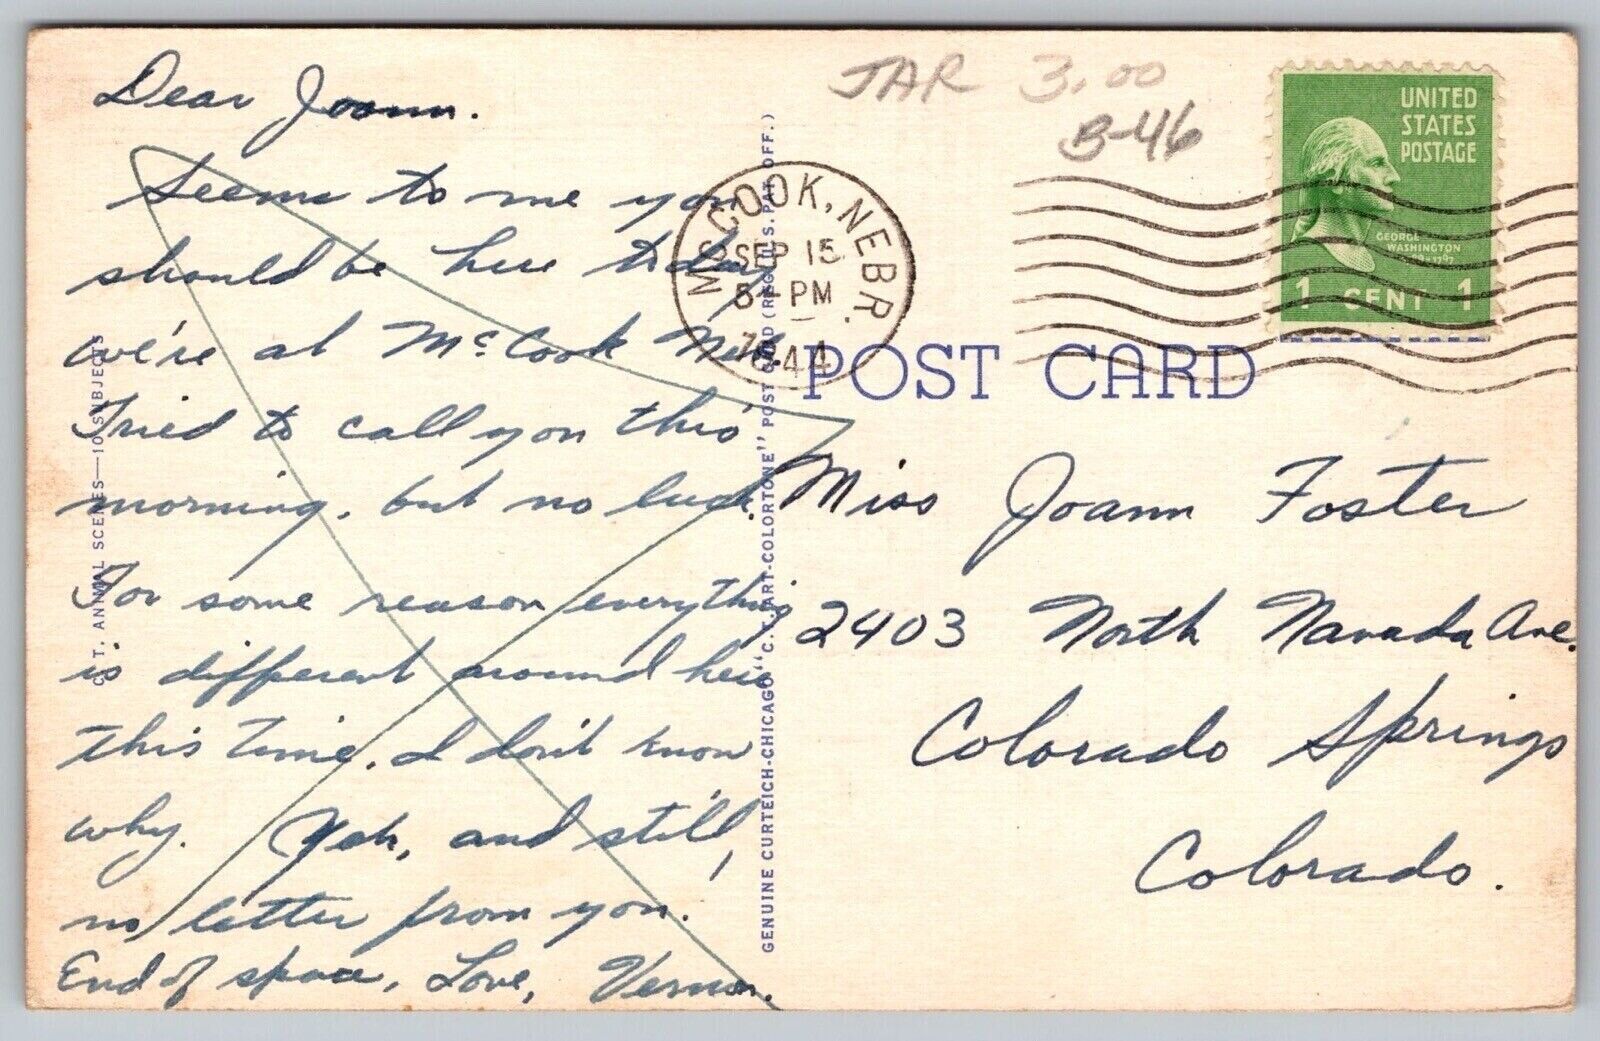 Dear Joann.
Seems to me you
should be here today
we're at McCook Neb.
Tried to call you this
morning, but no luck.
For some reason everything
is different around here
this time. I don't know
why. Yeh, and still,
no letter from you.
End of space, Love, Vernon.
C. T. ANIMAL SCENES—10 SUBJECTS
GENUINE CURTEICH-CHICAGO "C. T. ART-COLORTONE" POST CARD (REG. U.S. PAT. OFF.)
JAR 3.00
B-46
MCCOOK, NEBR.
SEP 15
PM
1944
UNITED
STATES
POSTAGE
GEORGE
WASHINGTON
1 CENT 1
POST CARD
Miss Joann Foster
2403 North Navada Ave.
Colorado Springs
Colorado.